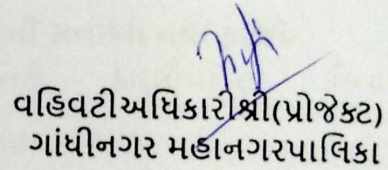 વહિવટીઅધિકારીશ્રી(પ્રોજેક્ટ)
ગાંધીનગર મહાનગરપાલિકા